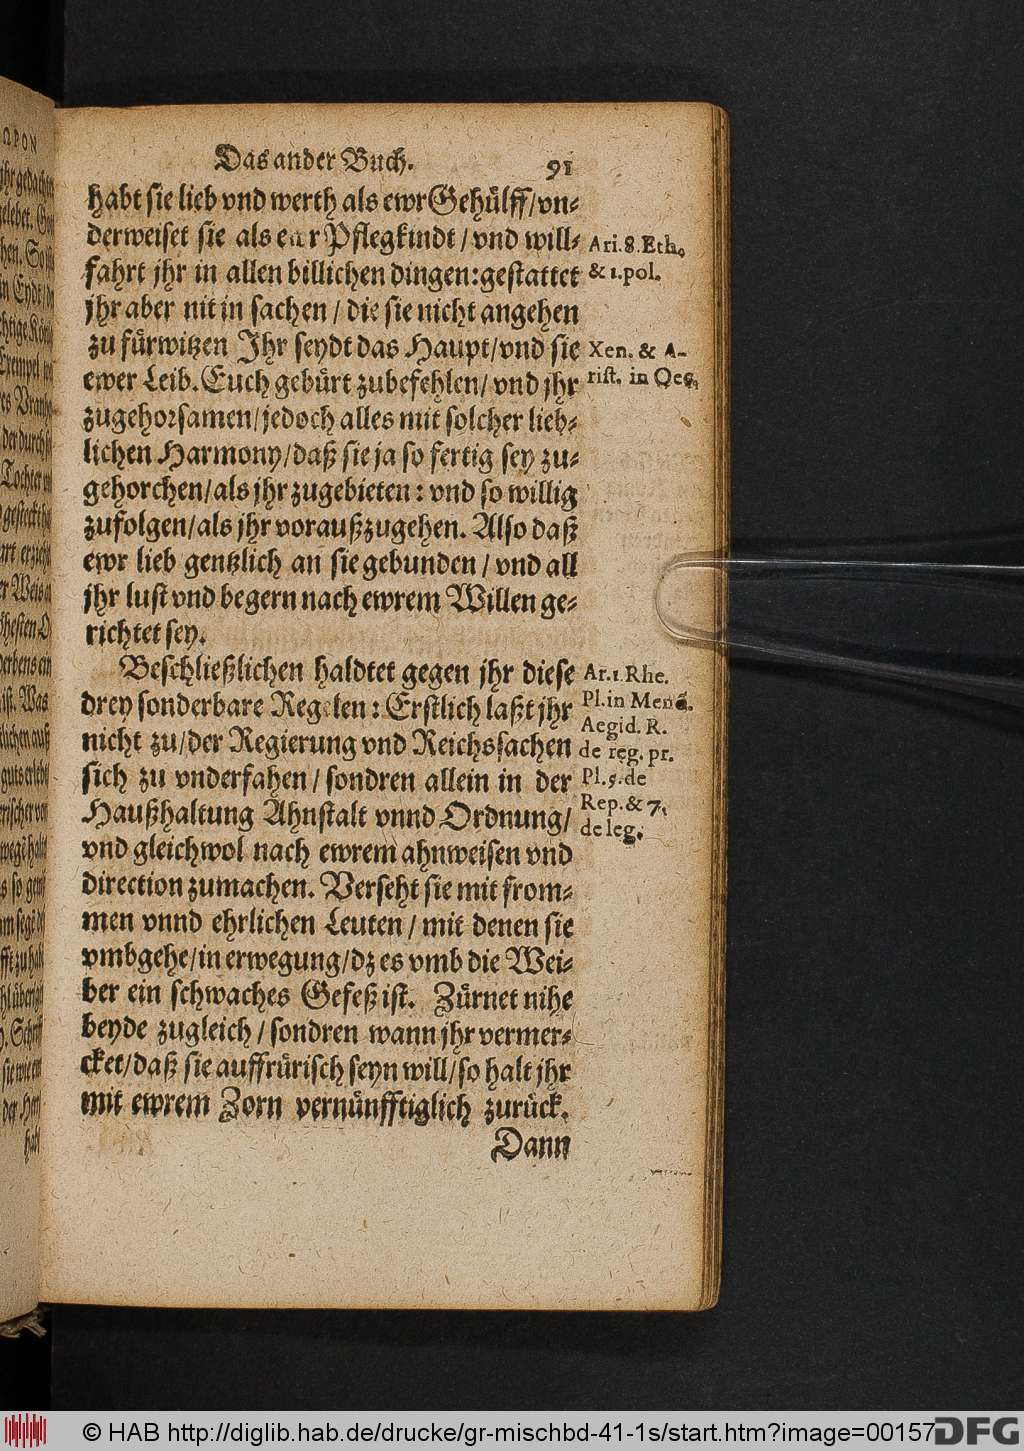 Das ander Buch. 91
habt sie lieb vnd werth als ewr Gehülff/vn-
derweiset sie als ewr Pflegkindt/vnd will-
fahrt jhr in allen billichen dingen:gestattet
jhr aber nit in sachen/die sie nicht angehen
zu fürwitzen Jhr seydt das Haupt/vnd sie
ewer Leib. Euch gebürt zubefehlen/vnd jhr
zugehorsamen/jedoch alles mit solcher lieb-
lichen Harmony/daß sie ja so fertig sey zu-
gehorchen/als jhr zugebieten: vnd so willig
zufolgen/als jhr vorauß zugehen. Also daß
ewr lieb gentzlich an sie gebunden/vnd all
jhr lust vnd begern nach ewrem Willen ge-
richtet sey.
Beschließlichen haldtet gegen jhr diese
drey sonderbare Regelen: Erstlich laßt jhr
nicht zu/der Regierung vnd Reichssachen
sich zu vnderfahen/sondren allein in der
Haußhaltung Ahnstalt vnnd Ordnung/
vnd gleichwol nach ewrem ahnweisen vnd
direction zumachen. Verseht sie mit from-
men vnnd ehrlichen Leuten/mit denen sie
vmbgehe/in erwegung/dz es vmb die Wei-
ber ein schwaches Gefeß ist. Zürnet nihe
beyde zugleich/sondren wann jhr vermer-
cket/daß sie auffrürisch seyn will/so halt jhr
mit ewrem Zorn vernünfftiglich zurück.
Dann
Ari. 8. Eth.
& 1. pol.
Xen. & A-
rist. in Oec.
Ar. 1 Rhe.
Pl. in Menē.
Aegid. R.
de reg. pr.
Pl. 5. de
Rep. & 7.
de leg.
© HAB http://diglib.hab.de/drucke/gr-mischbd-41-1s/start.htm?image=00157
DFG